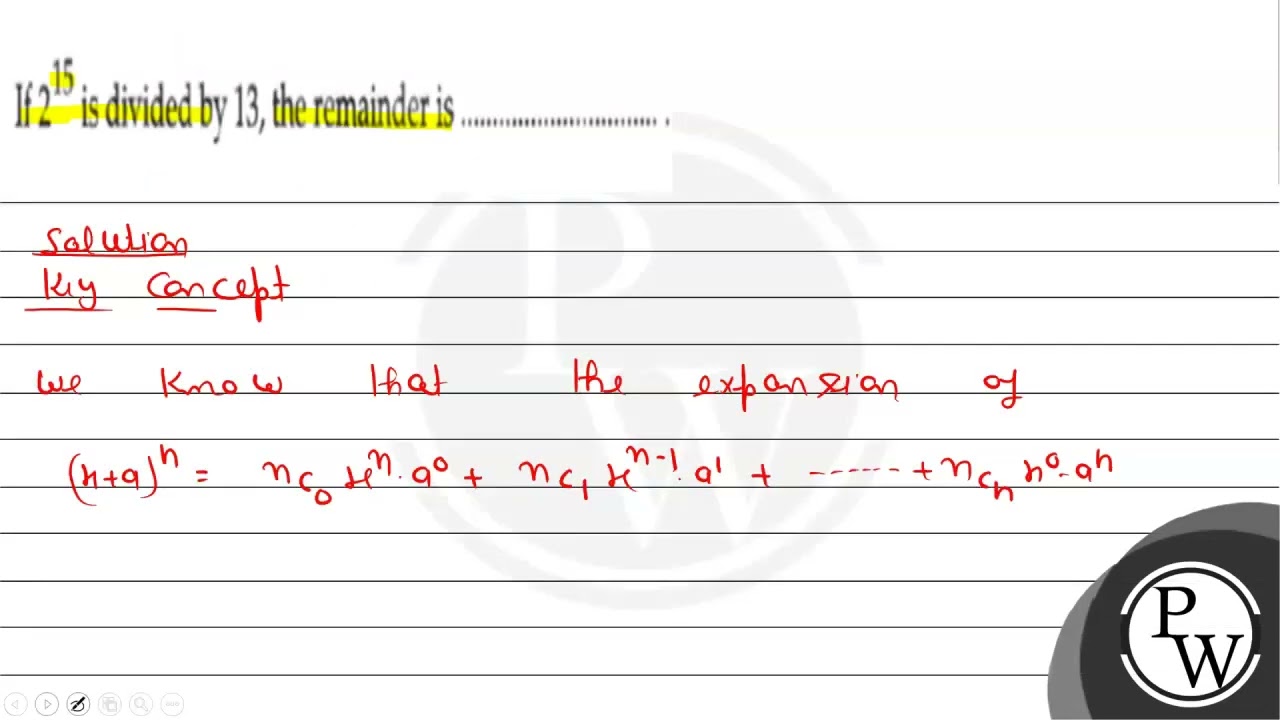 If 2^15 is divided by 13, the remainder is ................................ .
Solution
Key Concept
We know that the expansion of
(x+a)^n = nC₀ x^n · a^0 + nC₁ x^(n-1) · a^1 + ------ + nCₙ x^0 · a^n
PW
PW